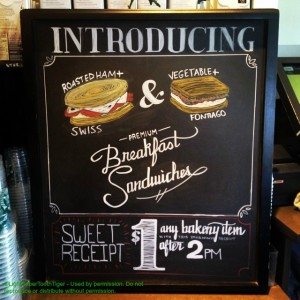 INTRODUCING
ROASTED HAM +
SWISS
&
VEGETABLE +
FONTIAGO
PREMIUM
Breakfast
Sandwiches
SWEET
RECEIPT
$1 any bakery item
WITH THIS MORNING'S RECEIPT
after 2PM
Used by permission. Do not
or distribute without permission.